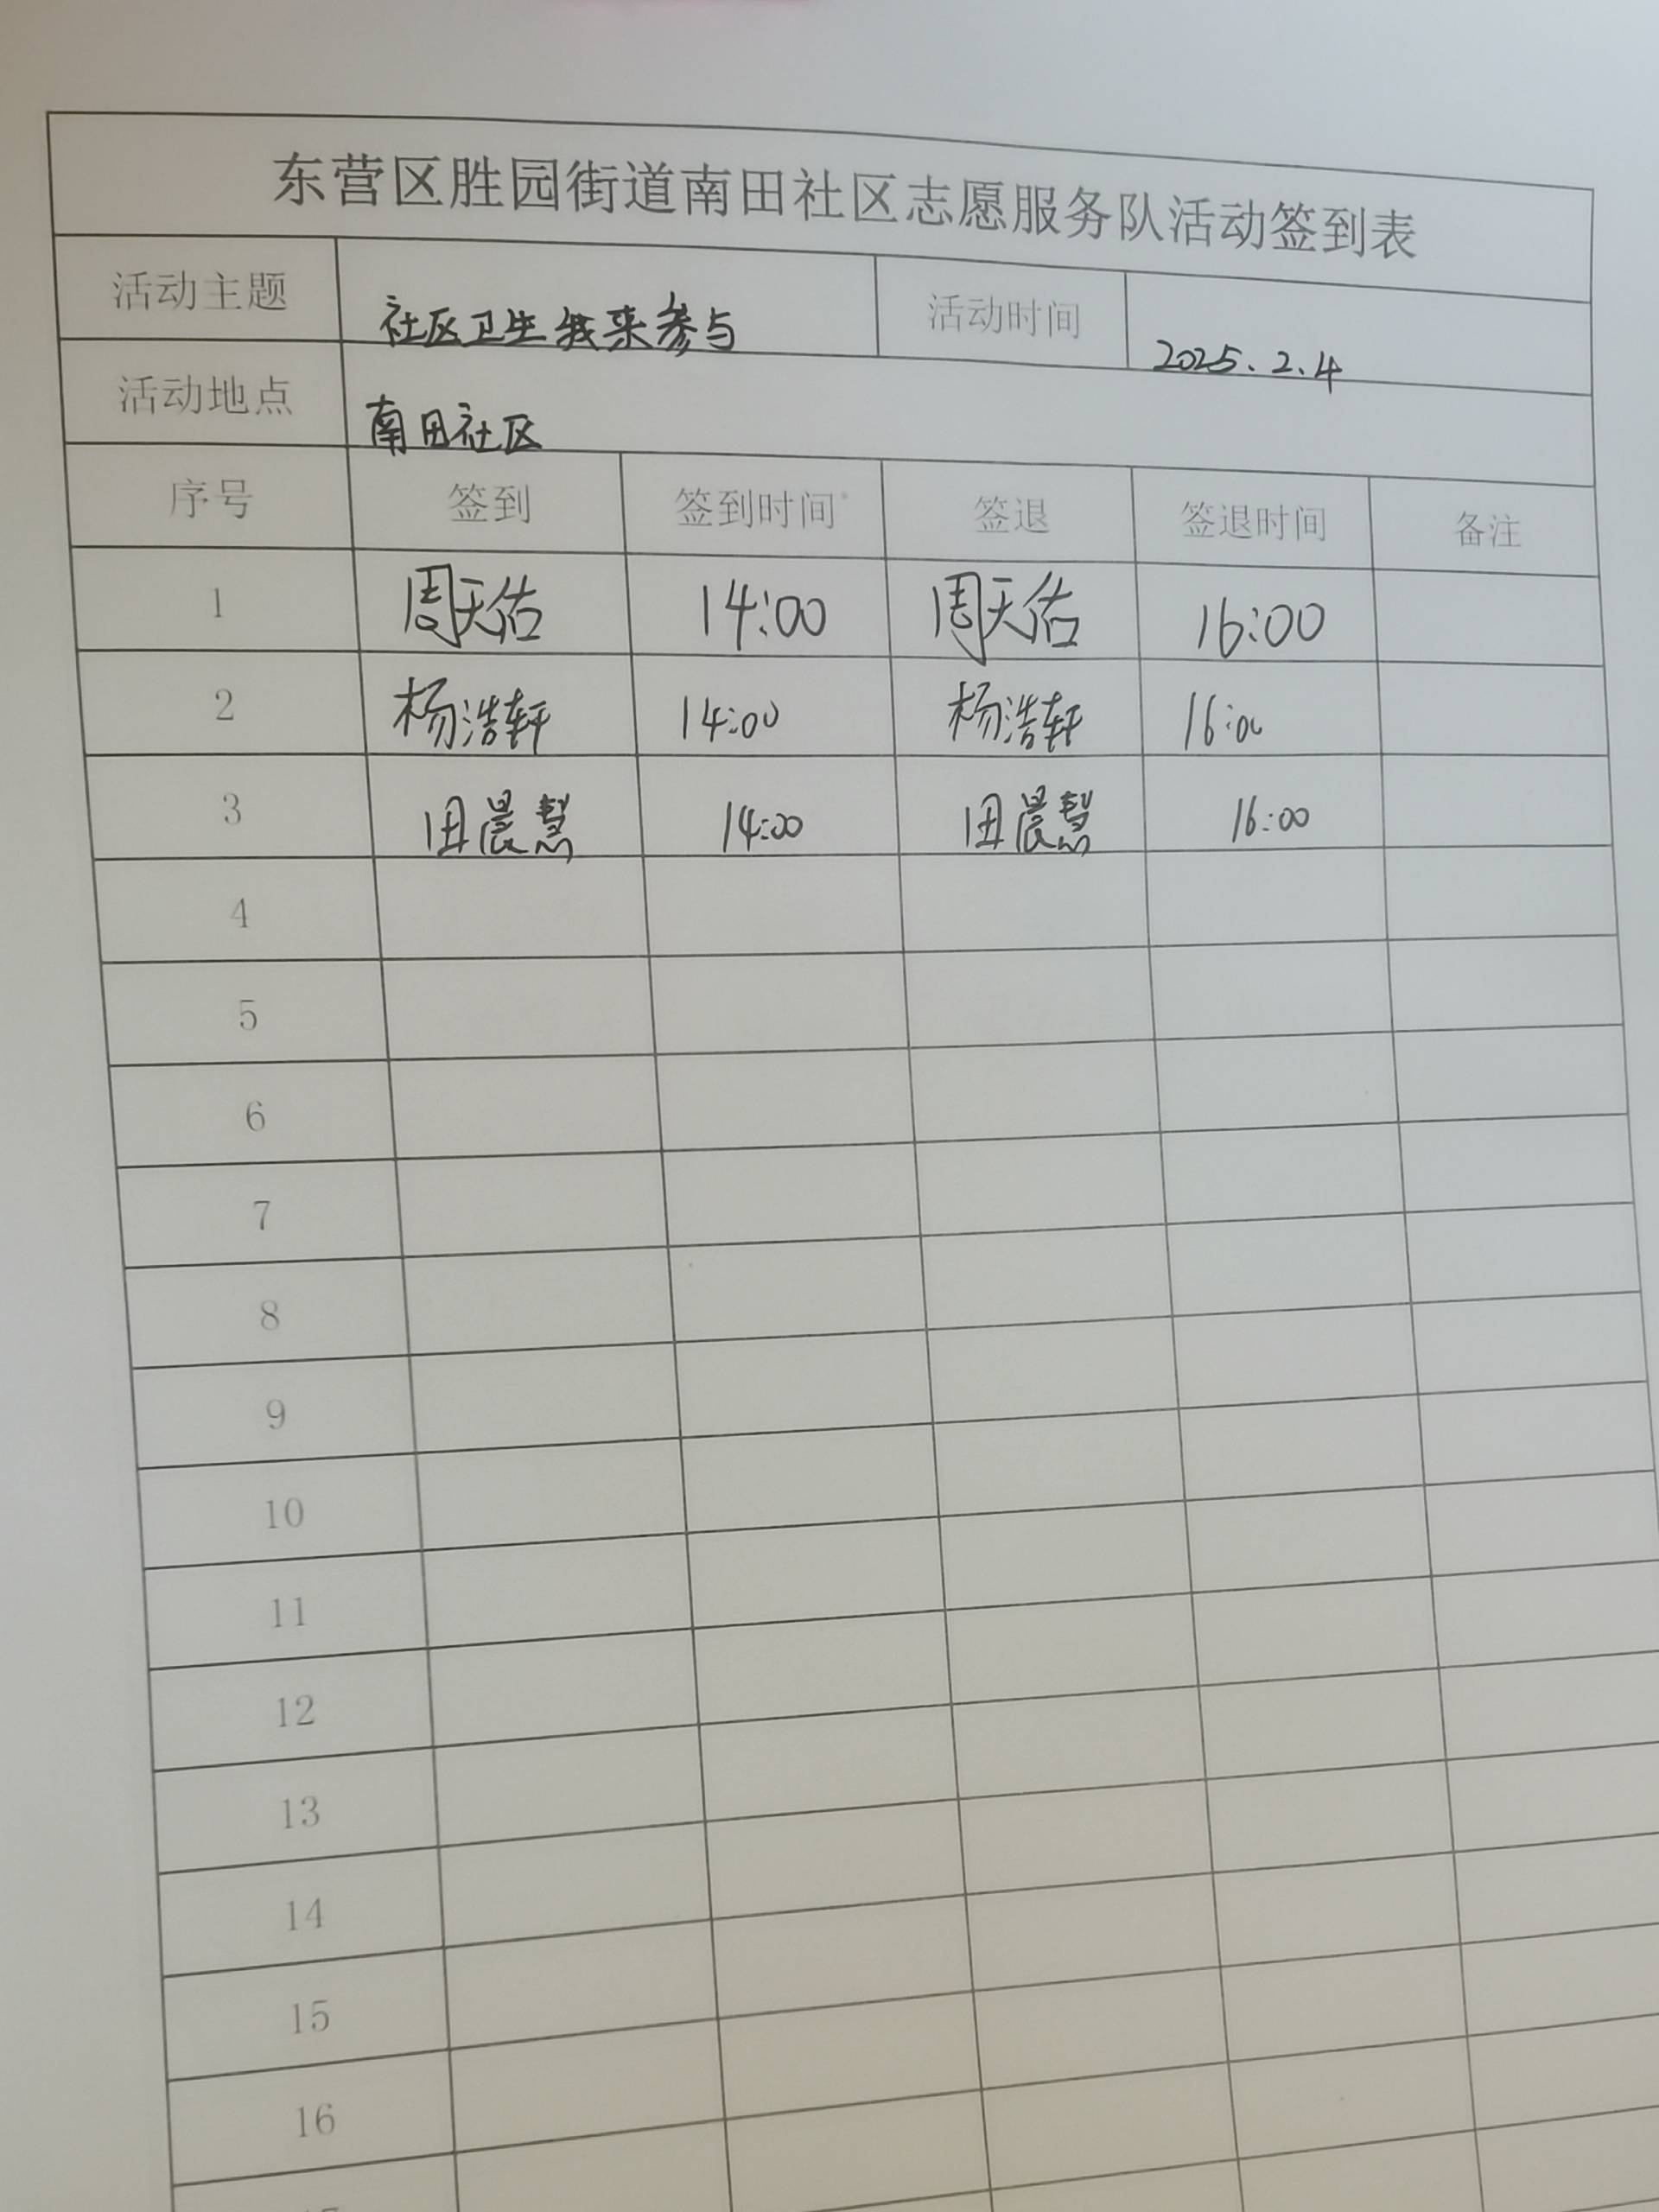 东营区胜园街道南田社区志愿服务队活动签到表
活动主题 社区卫生我来参与 活动时间 2025.2.4
活动地点 南田社区
序号 签到 签到时间 签退 签退时间 备注
1 周天佑 14:00 周天佑 16:00
2 杨浩轩 14:00 杨浩轩 16:00
3 田晨慧 14:00 田晨慧 16:00
4
5
6
7
8
9
10
11
12
13
14
15
16